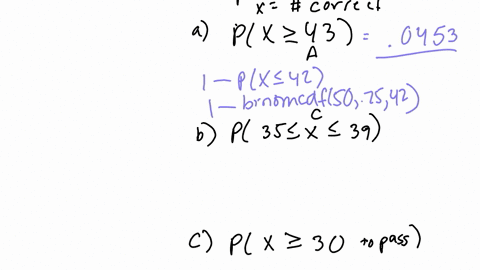 x = # correct
a) P(X ≥ 43) = .0453
A
1 – P(X ≤ 42)
1 – binomcdf(50, .75, 42)
C
b) P( 35 ≤ x ≤ 39)
c) P( X ≥ 30 to pass)